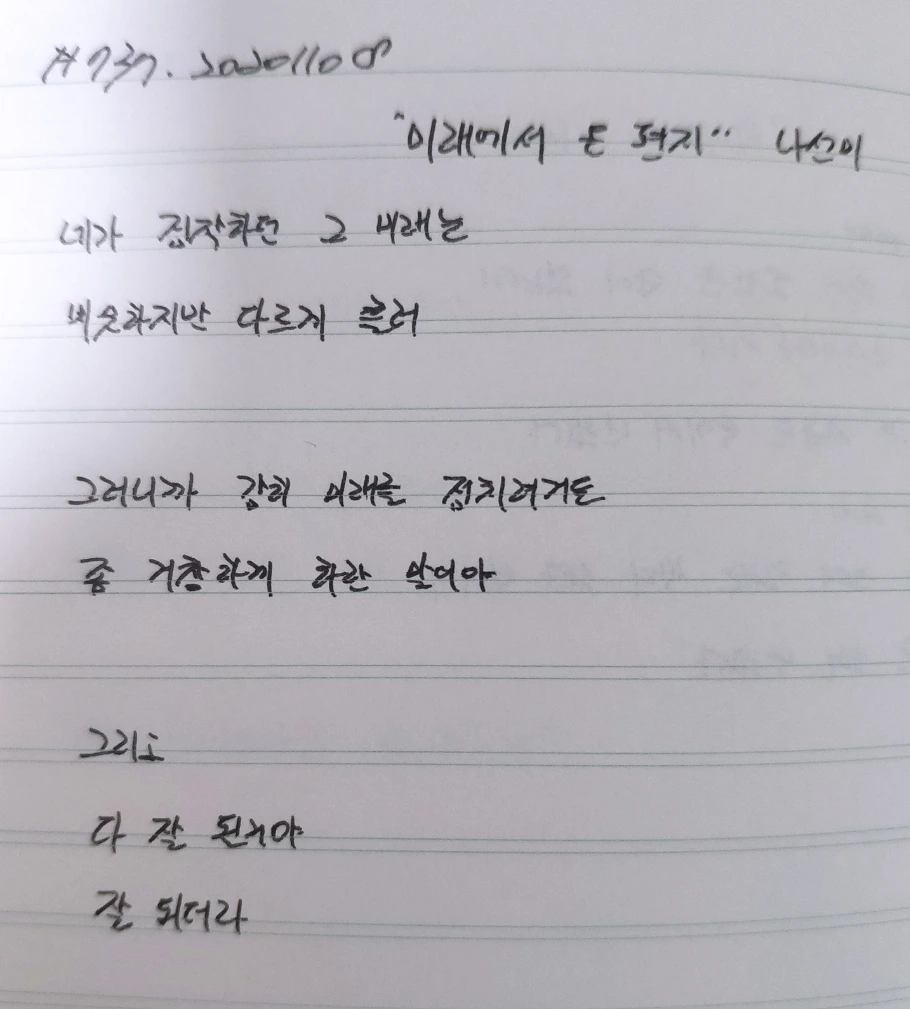 #737. 20201108
"미래에서 온 편지" 나선미
네가 짐작하던 그 미래는
비슷하지만 다르게 흘러
그러니까 감히 미래를 점치려거든
좀 거창하게 하란 말이야
그리고
다 잘 된거야
잘 되더라